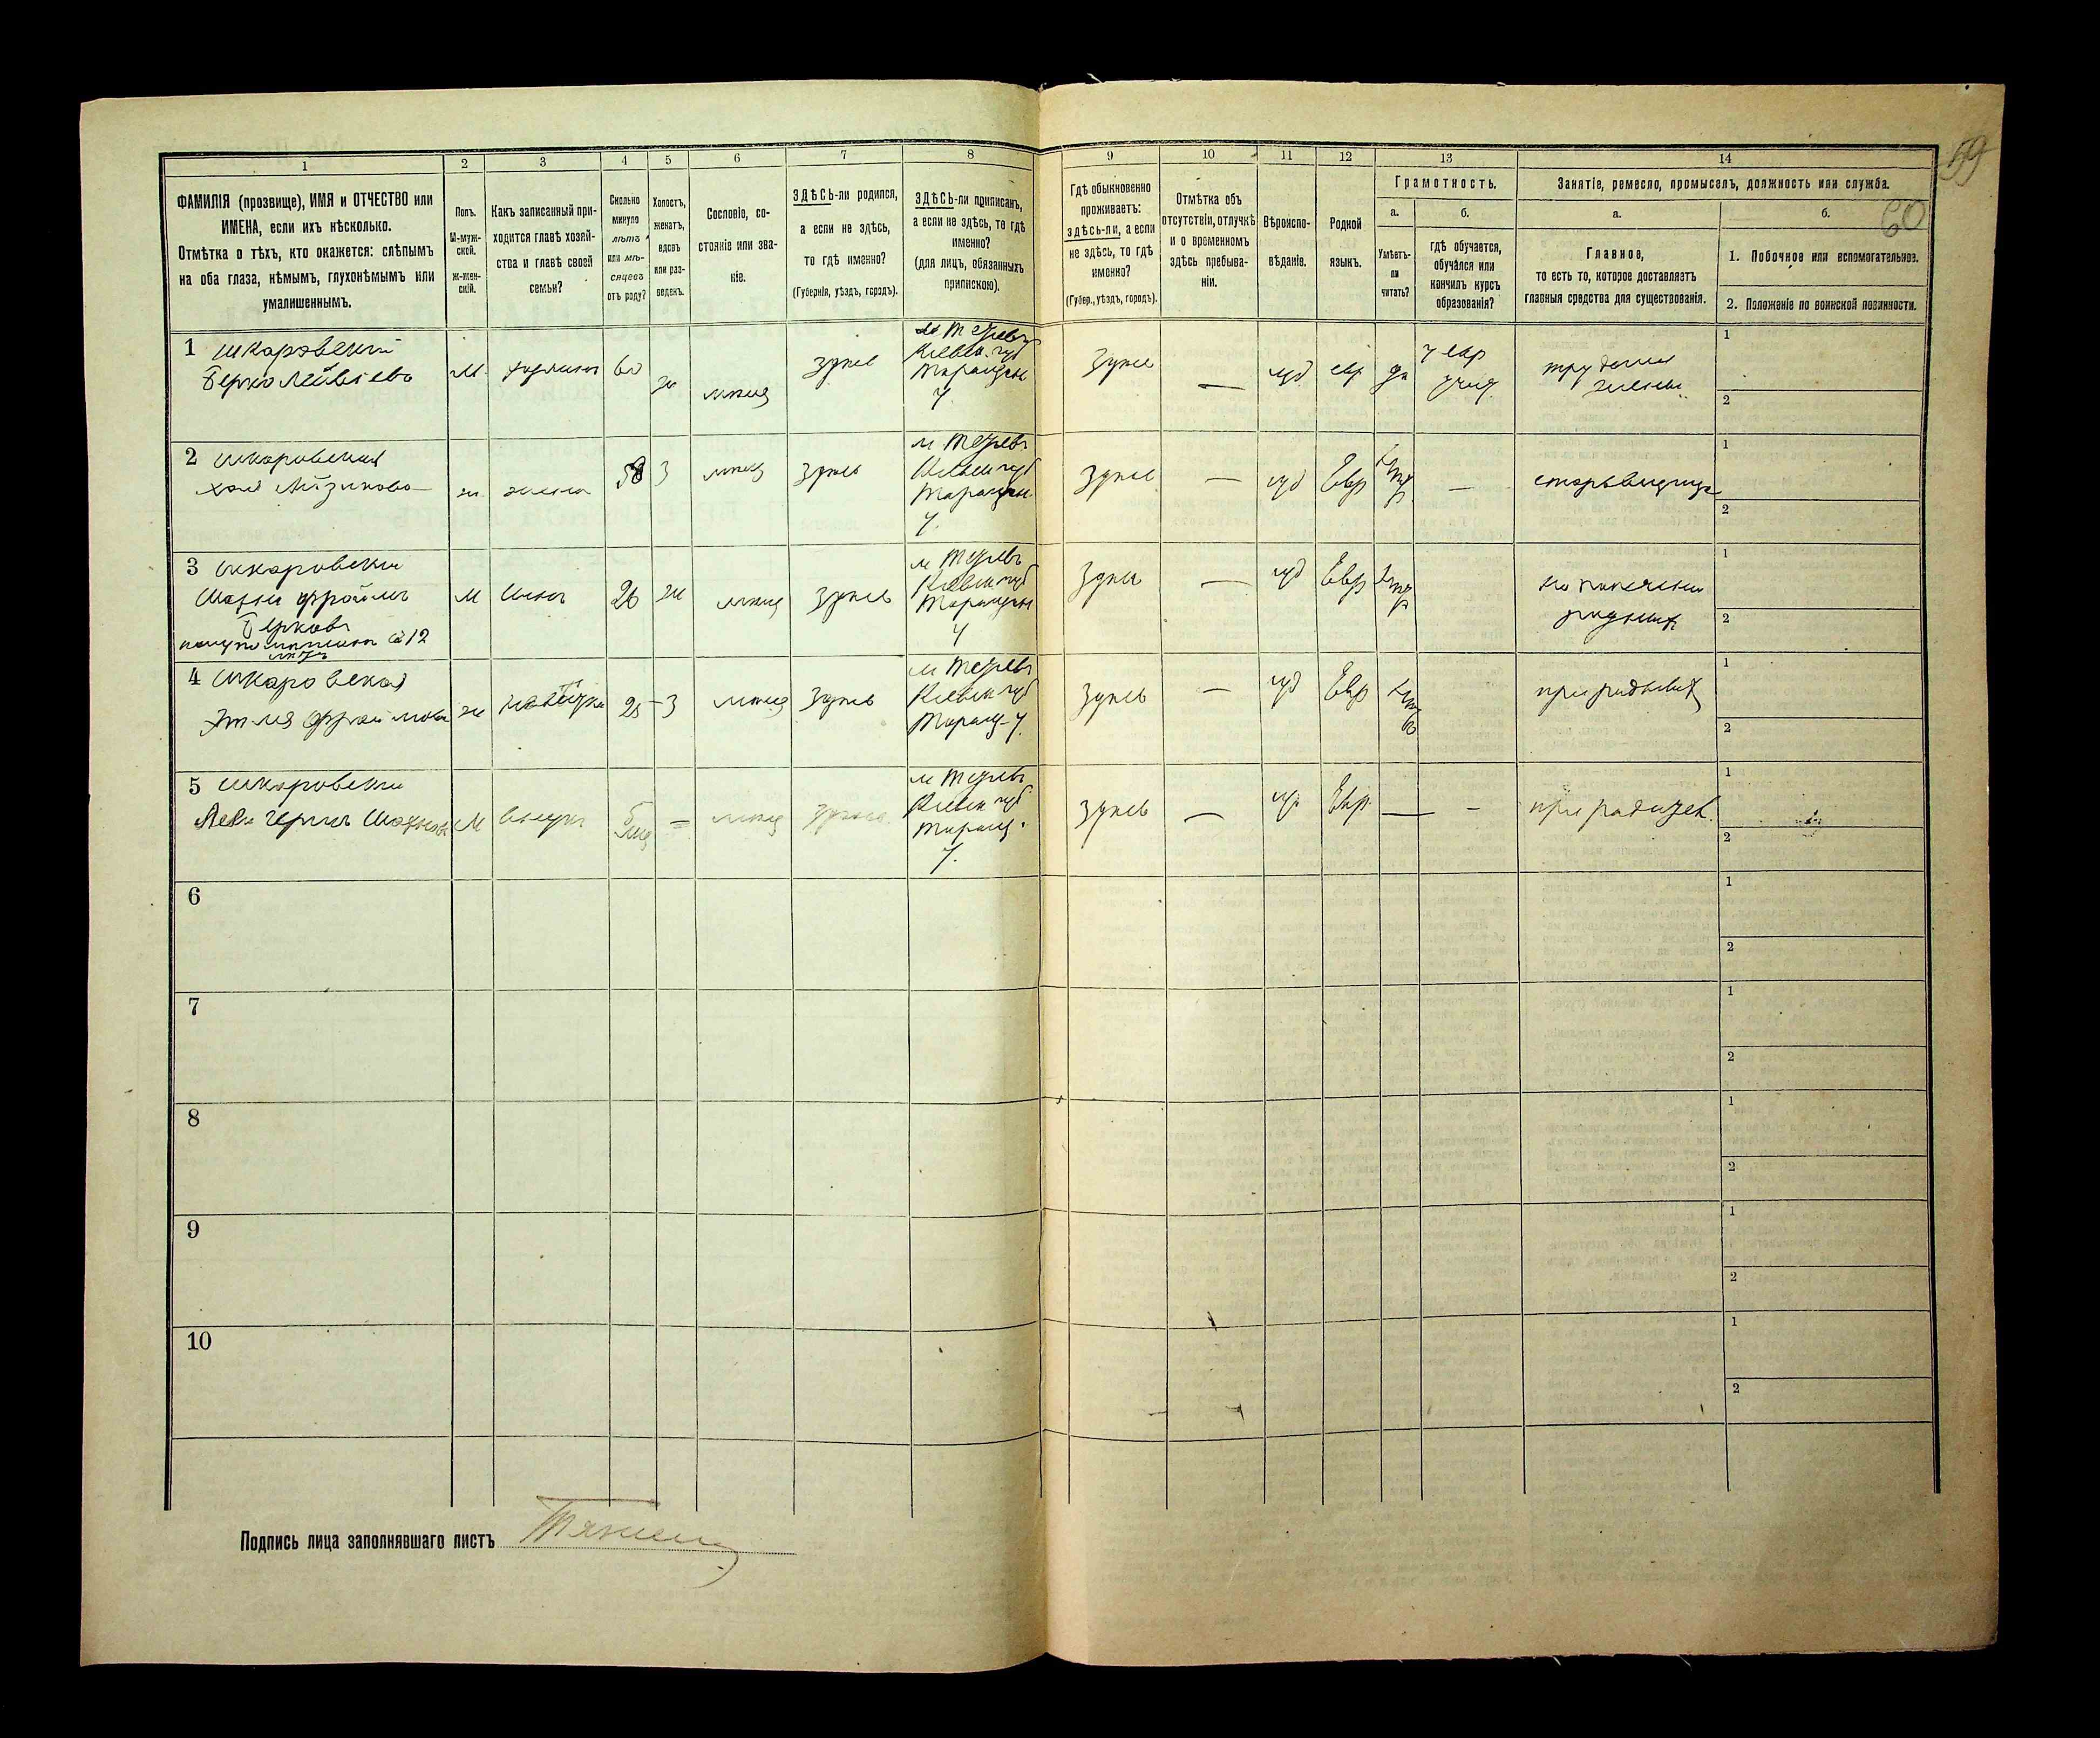 59
60
1
2
3
4
5
6
7
8
9
10
11
12
13
14
ФАМИЛІЯ (прозвище), ИМЯ и ОТЧЕСТВО или
ИМЕНА, если ихъ нѣсколько.
Отмѣтка о тѣхъ, кто окажется: слѣпымъ
на оба глаза, нѣмымъ, глухонѣмымъ или
умалишеннымъ.
Полъ.
М-муж-
ской.
ж-жен-
скій.
Какъ записанный при-
ходится главѣ хозяй-
ства и главѣ своей
семьи?
Сколько
минуло
лѣтъ
или мѣ-
сяцевъ
отъ роду?
Холостъ,
женатъ,
вдовъ
или раз-
веденъ.
Сословіе, со-
стояніе или зва-
ніе.
ЗДѢСЬ-ли родился,
а если не здѣсь,
то гдѣ именно?
(Губернія, уѣздъ, городъ).
ЗДѢСЬ-ли приписанъ,
а если не здѣсь, то гдѣ
именно?
(для лицъ, обязанныхъ
припискою).
Гдѣ обыкновенно
проживаетъ:
здѣсь-ли, а если
не здѣсь, то гдѣ
именно?
(Губер., уѣздъ, городъ).
Отмѣтка объ
отсутствіи, отлучкѣ
и о временномъ
здѣсь пребыва-
ніи.
Вѣроиспо-
вѣданіе.
Родной
языкъ.
Грамотность.
а.
Умѣетъ-
ли
читать?
б.
гдѣ обучается,
обучался или
кончилъ курсъ
образованія?
Занятіе, ремесло, промыселъ, должность или служба.
а.
Главное,
то есть то, которое доставляетъ
главныя средства для существованія.
б.
1. Побочное или вспомогательное.
2. Положеніе по воинской повинности.
1 Шкаровскій
Берко Лейбіевъ
М
хозяинъ
60
ж
мѣщ
здѣсь
м Тетіевъ
Кіевск. губ
Таращан
у.
здѣсь
—
іуд
евр
да
у евр
учид.
1
2
2 Шкаровская
Хая Айзикова
ж
жена
58
з
мѣщ
здѣсь
м Тетіевъ
Кіевск губ
Таращан.
у.
здѣсь
—
іуд
Евр
—
1
2
3 Шкаровскій
Берковъ
М
сынъ
26
ж
мѣщ
здѣсь
м Тетіевъ
Кіевск губ
Таращан
у
здѣсь
—
іуд
Евр
1
2
4 Шкаровская
ж
невѣстка
25
з
мѣщ
здѣсь
м Тетіевъ
Кіевск губ
Таращ. у.
здѣсь
—
іуд
Евр
1
2
5 Шкаровскій
М
внукъ
5
мѣщ
здѣсь
м Тетіевъ
Кіевск губ
Таращ.
у.
здѣсь
—
Евр.
—
—
1
2
6
1
2
7
1
2
8
1
2
9
1
2
10
1
2
Подпись лица заполнявшаго листъ